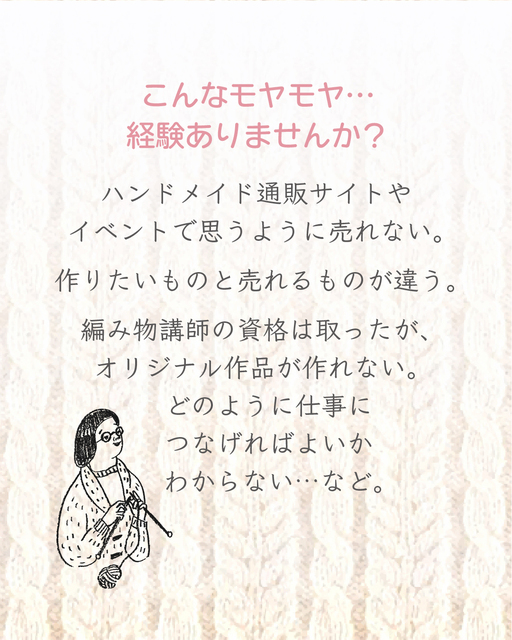 こんなモヤモヤ…
経験ありませんか？
ハンドメイド通販サイトや
イベントで思うように売れない。
作りたいものと売れるものが違う。
編み物講師の資格は取ったが、
オリジナル作品が作れない。
どのように仕事に
つなげればよいか
わからない…など。